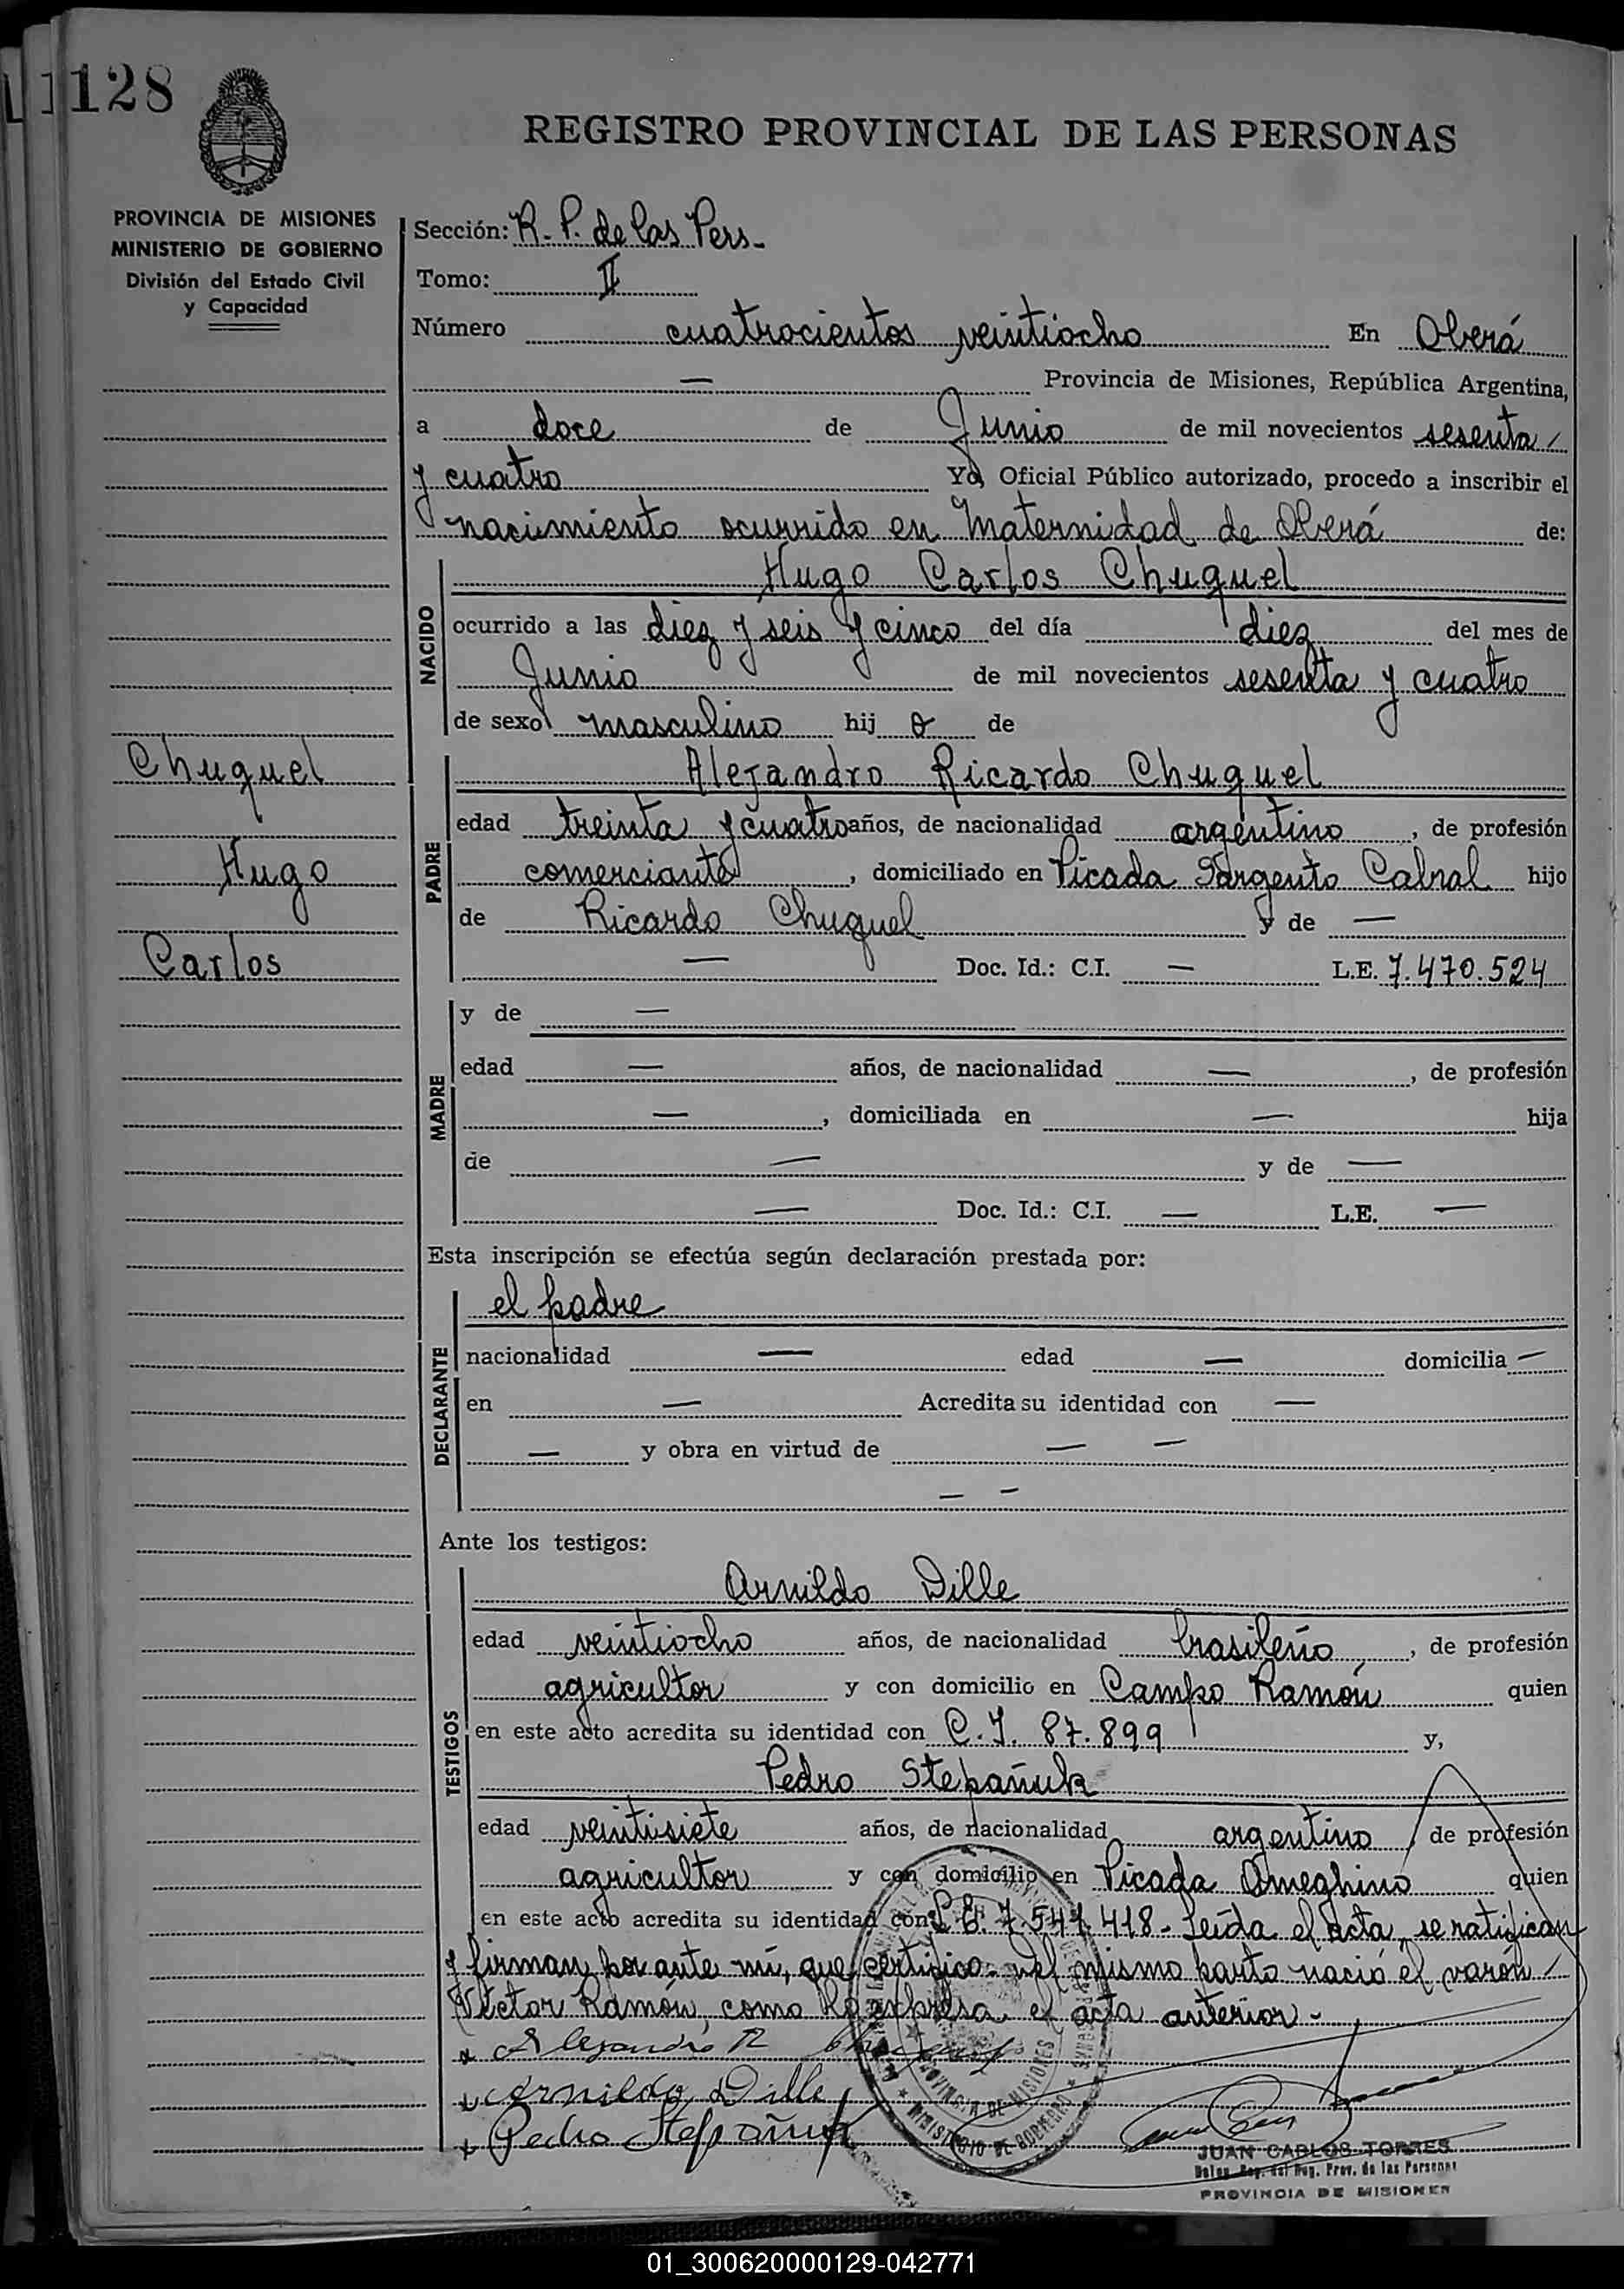 128
REGISTRO PROVINCIAL DE LAS PERSONAS
PROVINCIA DE MISIONES
MINISTERIO DE GOBIERNO
División del Estado Civil
y Capacidad
Sección: R. P. de las Pers-
Tomo: II
Número cuatrocientos veintiocho En Oberá
— Provincia de Misiones, República Argentina,
a doce de Junio de mil novecientos sesenta/
y cuatro Yo, Oficial Público autorizado, procedo a inscribir el
nacimiento ocurrido en Maternidad de Oberá de:
NACIDO
Hugo Carlos Chuquel
ocurrido a las diez y seis y cinco del día diez del mes de
Junio de mil novecientos sesenta y cuatro
de sexo masculino hij o de
Chuquel
Hugo
Carlos
PADRE
Alejandro Ricardo Chuquel
edad treinta y cuatro años, de nacionalidad argentino, de profesión
comerciante, domiciliado en Picada Sargento Cabral hijo
de Ricardo Chuquel y de —
— Doc. Id.: C.I. — L.E. 7.470.524
MADRE
y de —
edad — años, de nacionalidad —, de profesión
—, domiciliada en — hija
de — y de —
— Doc. Id.: C.I. — L.E. —
Esta inscripción se efectúa según declaración prestada por:
DECLARANTE
el padre
nacionalidad — edad — domicilia —
en — Acredita su identidad con —
— y obra en virtud de — —
— —
Ante los testigos:
TESTIGOS
Arnildo Dille
edad veintiocho años, de nacionalidad brasileño, de profesión
agricultor y con domicilio en Campo Ramón quien
en este acto acredita su identidad con C.I. 87.899 y,
Pedro Stepañuk
edad veintisiete años, de nacionalidad argentino, de profesión
agricultor y con domicilio en Picada Ameghino quien
en este acto acredita su identidad con L.E. 7.541.418- Leída el acta, se ratifican
y firman por ante mí, que certifico. Del mismo parto nació el varón/
Víctor Ramón, como lo expresa el acta anterior-
x Alejandro R
x Arnildo Dille
x Pedro Stepañuk
PROVINCIA DE MISIONES
MINISTERIO DE GOBIERNO
JUAN CARLOS TORRES
Reg. Prov. de las Personas
PROVINCIA DE MISIONES
01_300620000129-042771